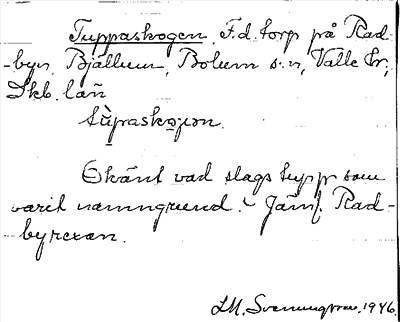 Tuppaskogen. F.d. torp på Rad-
-byn, Bjällum, Bolum s:n, Valle hr,
Skb. län
Okänt vad slags tupp som
varit namngivend. Jämf. Rad-
byrexen.
LM. Svenungsson. 1946.